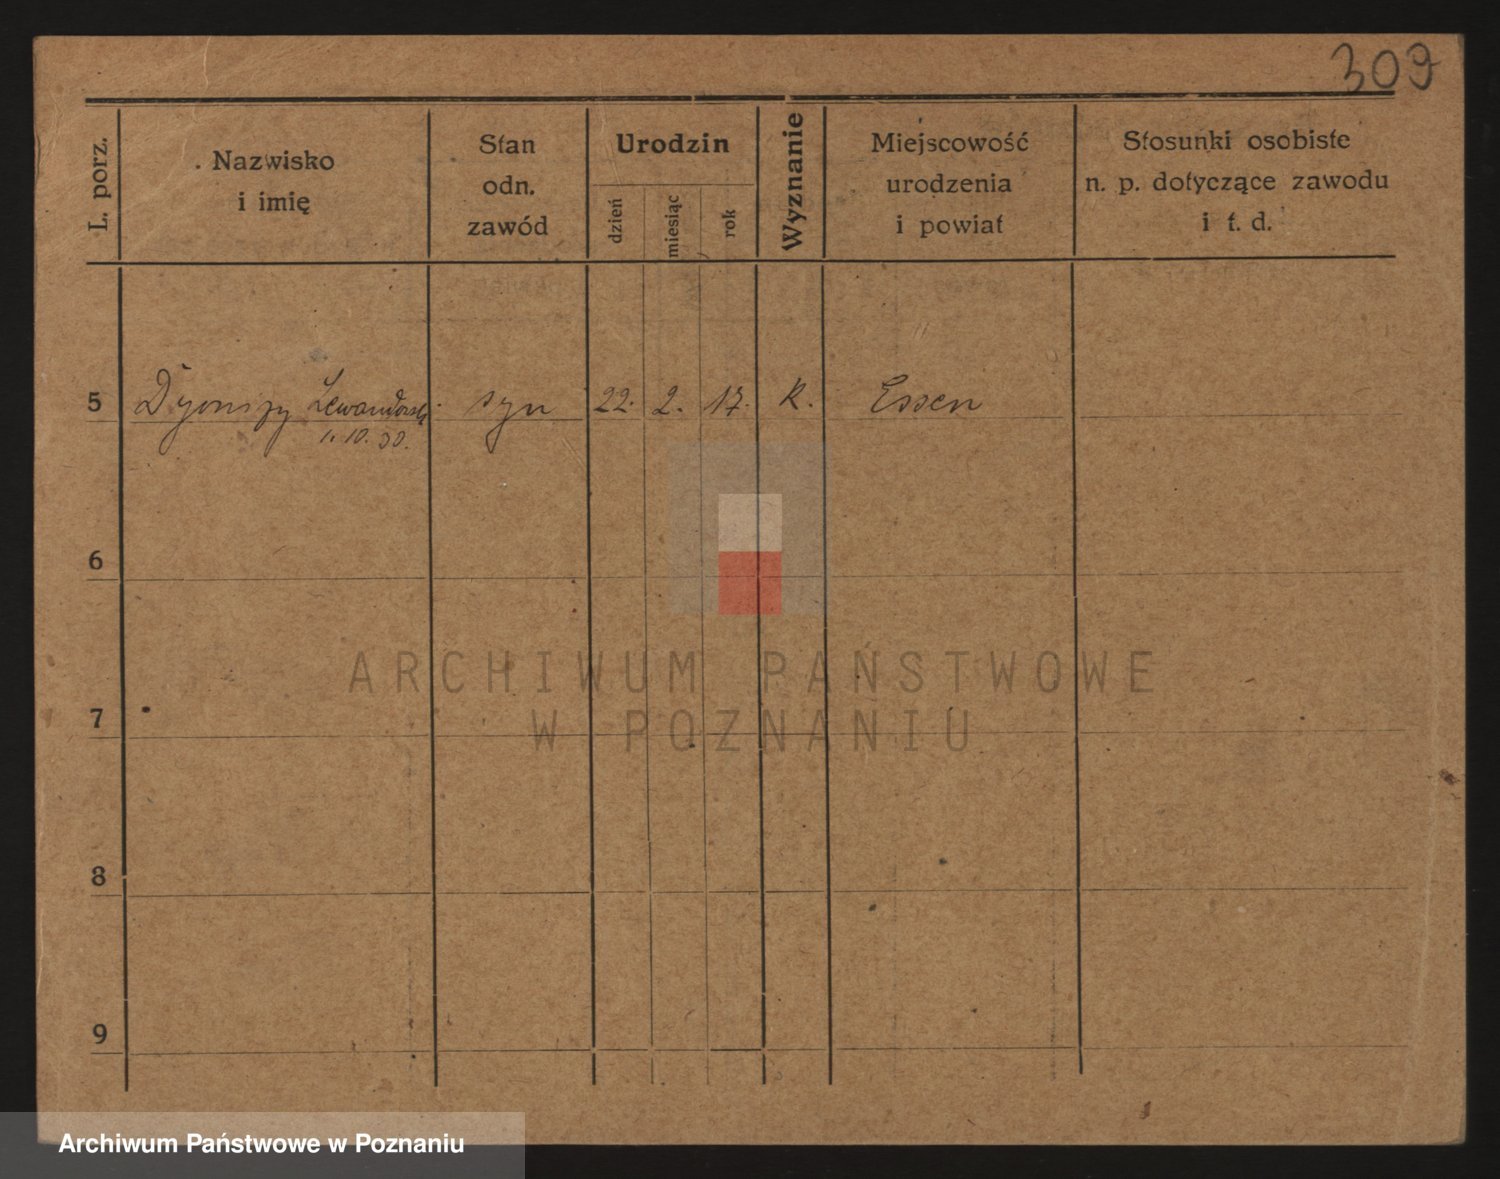 309
L. porz.
Nazwisko
i imię
Stan
odn.
zawód
Urodzin
dzień
miesiąc
rok
Wyznanie
Miejscowość
urodzenia
i powiat
Stosunki osobiste
n. p. dotyczące zawodu
i t. d.
5 Dyonizy Lewandowski syn 22. 2. 17. K. Essen
1. 10. 30.
6
ARCHIWUM PAŃSTWOWE
7
W POZNANIU
8
9
Archiwum Państwowe w Poznaniu